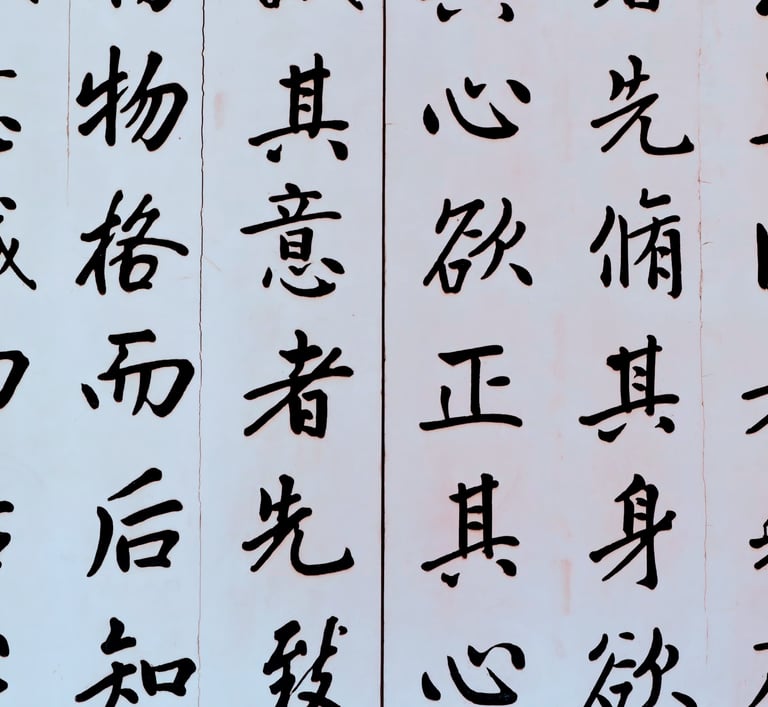 先脩其身欲
心欲正其心
其意者先致
物格而后知